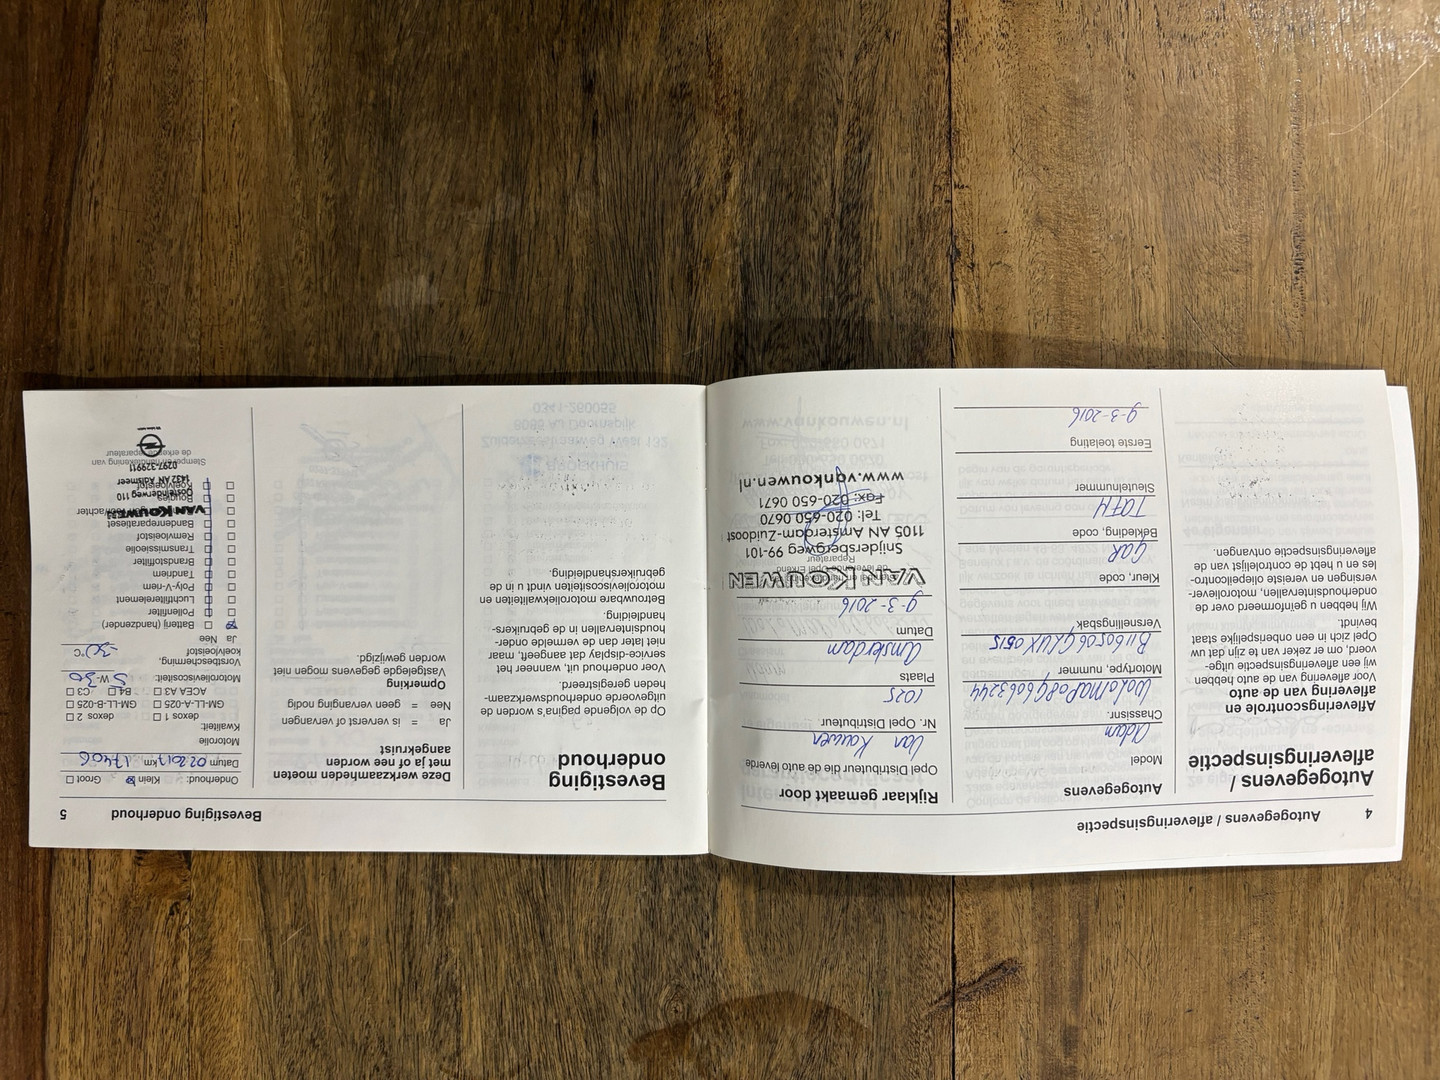 4
Autogegevens / afleveringsinspectie
Autogegevens /
afleveringsinspectie
Afleveringscontrole en
aflevering van de auto
Voor aflevering van de auto hebben
wij een afleveringsinspectie uitge-
voerd, om er zeker van te zijn dat uw
Opel zich in een onberispelijke staat
bevindt.
Wij hebben u geïnformeerd over de
onderhoudsintervallen, motoroliever-
versingen en vereiste oliepeilcontro-
les en u hebt de controlelijst van de
afleveringsinspectie ontvangen.
Autogegevens
Model
Adam
Chassisnr.
W0L0MAP08G6063244
Motortype, nummer
Versnellingsbak
Kleur, code
GAR
Bekleding, code
TATM
Sleutelnummer
Eerste toelating
9-3-2016
Rijklaar gemaakt door
Opel Distributeur die de auto leverde
Van Kouwen
Nr. Opel Distributeur.
1025
Plaats
Amsterdam
Datum
9-3-2016
VAN KOUWEN
Snijdersbergweg 99-101
1105 AN Amsterdam-Zuidoost
Tel: 020-650 0670
Fax: 020-650 0671
www.vankouwen.nl
Bevestiging onderhoud
5
Bevestiging
onderhoud
Op de volgende pagina's worden de
uitgevoerde onderhoudswerkzaam-
heden geregistreerd.
Voer onderhoud uit, wanneer het
service-display dat aangeeft, maar
niet later dan de vermelde onder-
houdsintervallen in de gebruikers-
handleiding.
Betrouwbare motoroliekwaliteiten en
motorolieviscositeiten vindt u in de
gebruikershandleiding.
Deze werkzaamheden moeten
met ja of nee worden
aangekruist
Ja = is ververst of vervangen
Nee = geen vervanging nodig
Opmerking
Vastgelegde gegevens mogen niet
worden gewijzigd.
Onderhoud: Klein Groot
Datum 02 2017 km 17406
Motorolie
Kwaliteit:
dexos 1 dexos 2
GM-LL-A-025 GM-LL-B-025
ACEA A3 B4 C3
Motorolieviscositeit: 5 W- 30
Vorstbescherming,
koelvloeistof -30 °C
Ja Nee
Batterij (handzender)
Pollenfilter
Luchtfilterelement
Poly-V-riem
Tandriem
Brandstoffilter
Transmissieolie
Remvloeistof
Bandenreparatieset
VAN KOUWEN
Bougies
Oosteinderweg 110
Koelvloeistof
1432 AN Aalsmeer
0297-329911
Stempel en handtekening van
de erkende reparateur